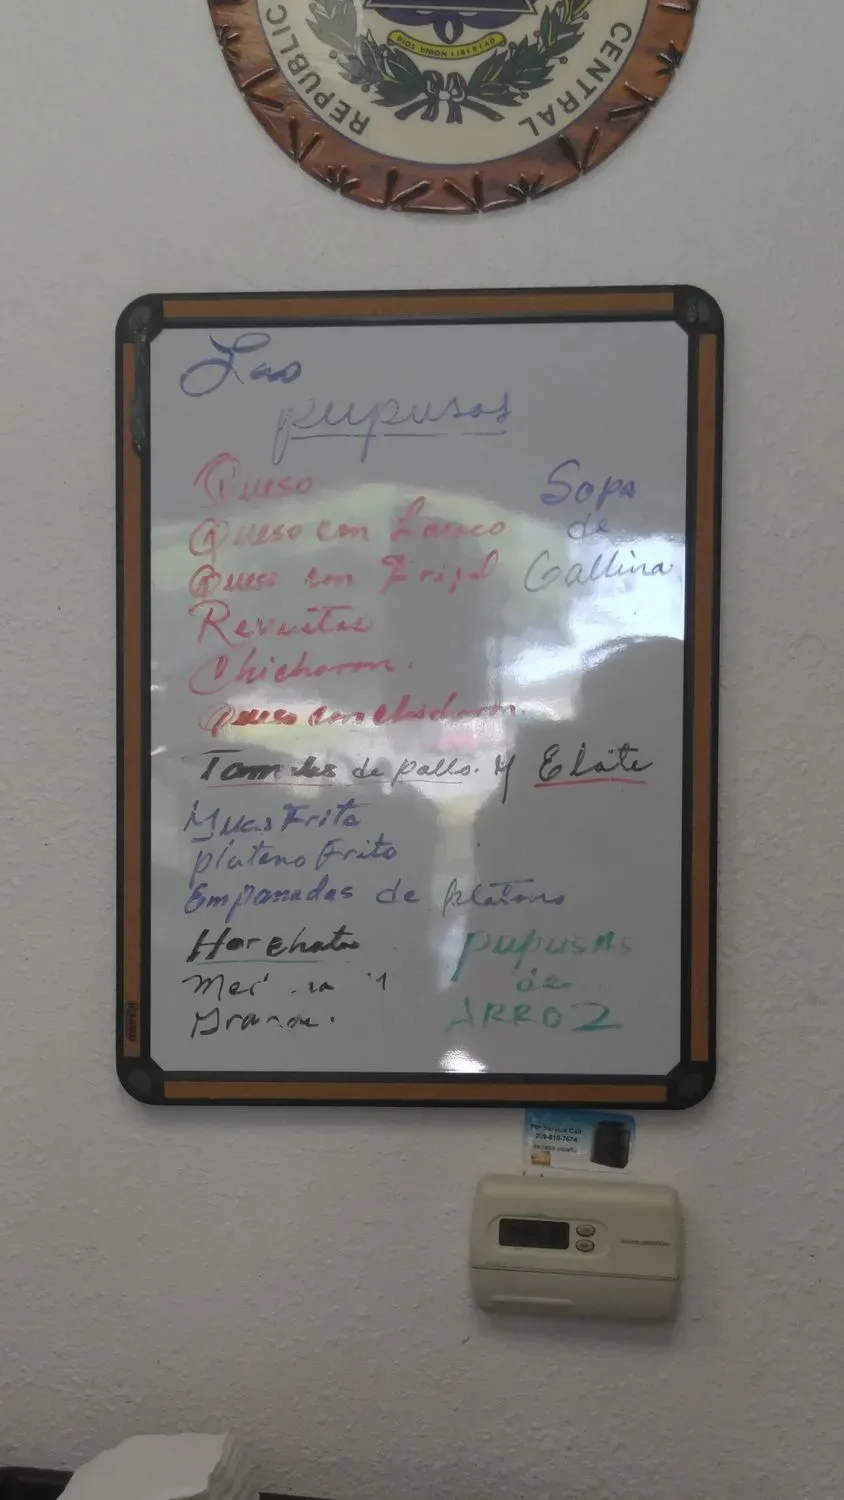 DIOS UNION LIBERTAD
REPUBLIC
CENTRAL
Las
pupusas
Queso
Queso con Loroco
Queso con Frijol
Revueltas
Chicharon.
Queso con chicharon
Sopa
de
Gallina
Tamales de pollo. y Elote
Yucas Frita
plateno Frito
Empanadas de platano
Horchata
Grande.
pupusas
de
ARROZ
For Service Call:
209-815-7674